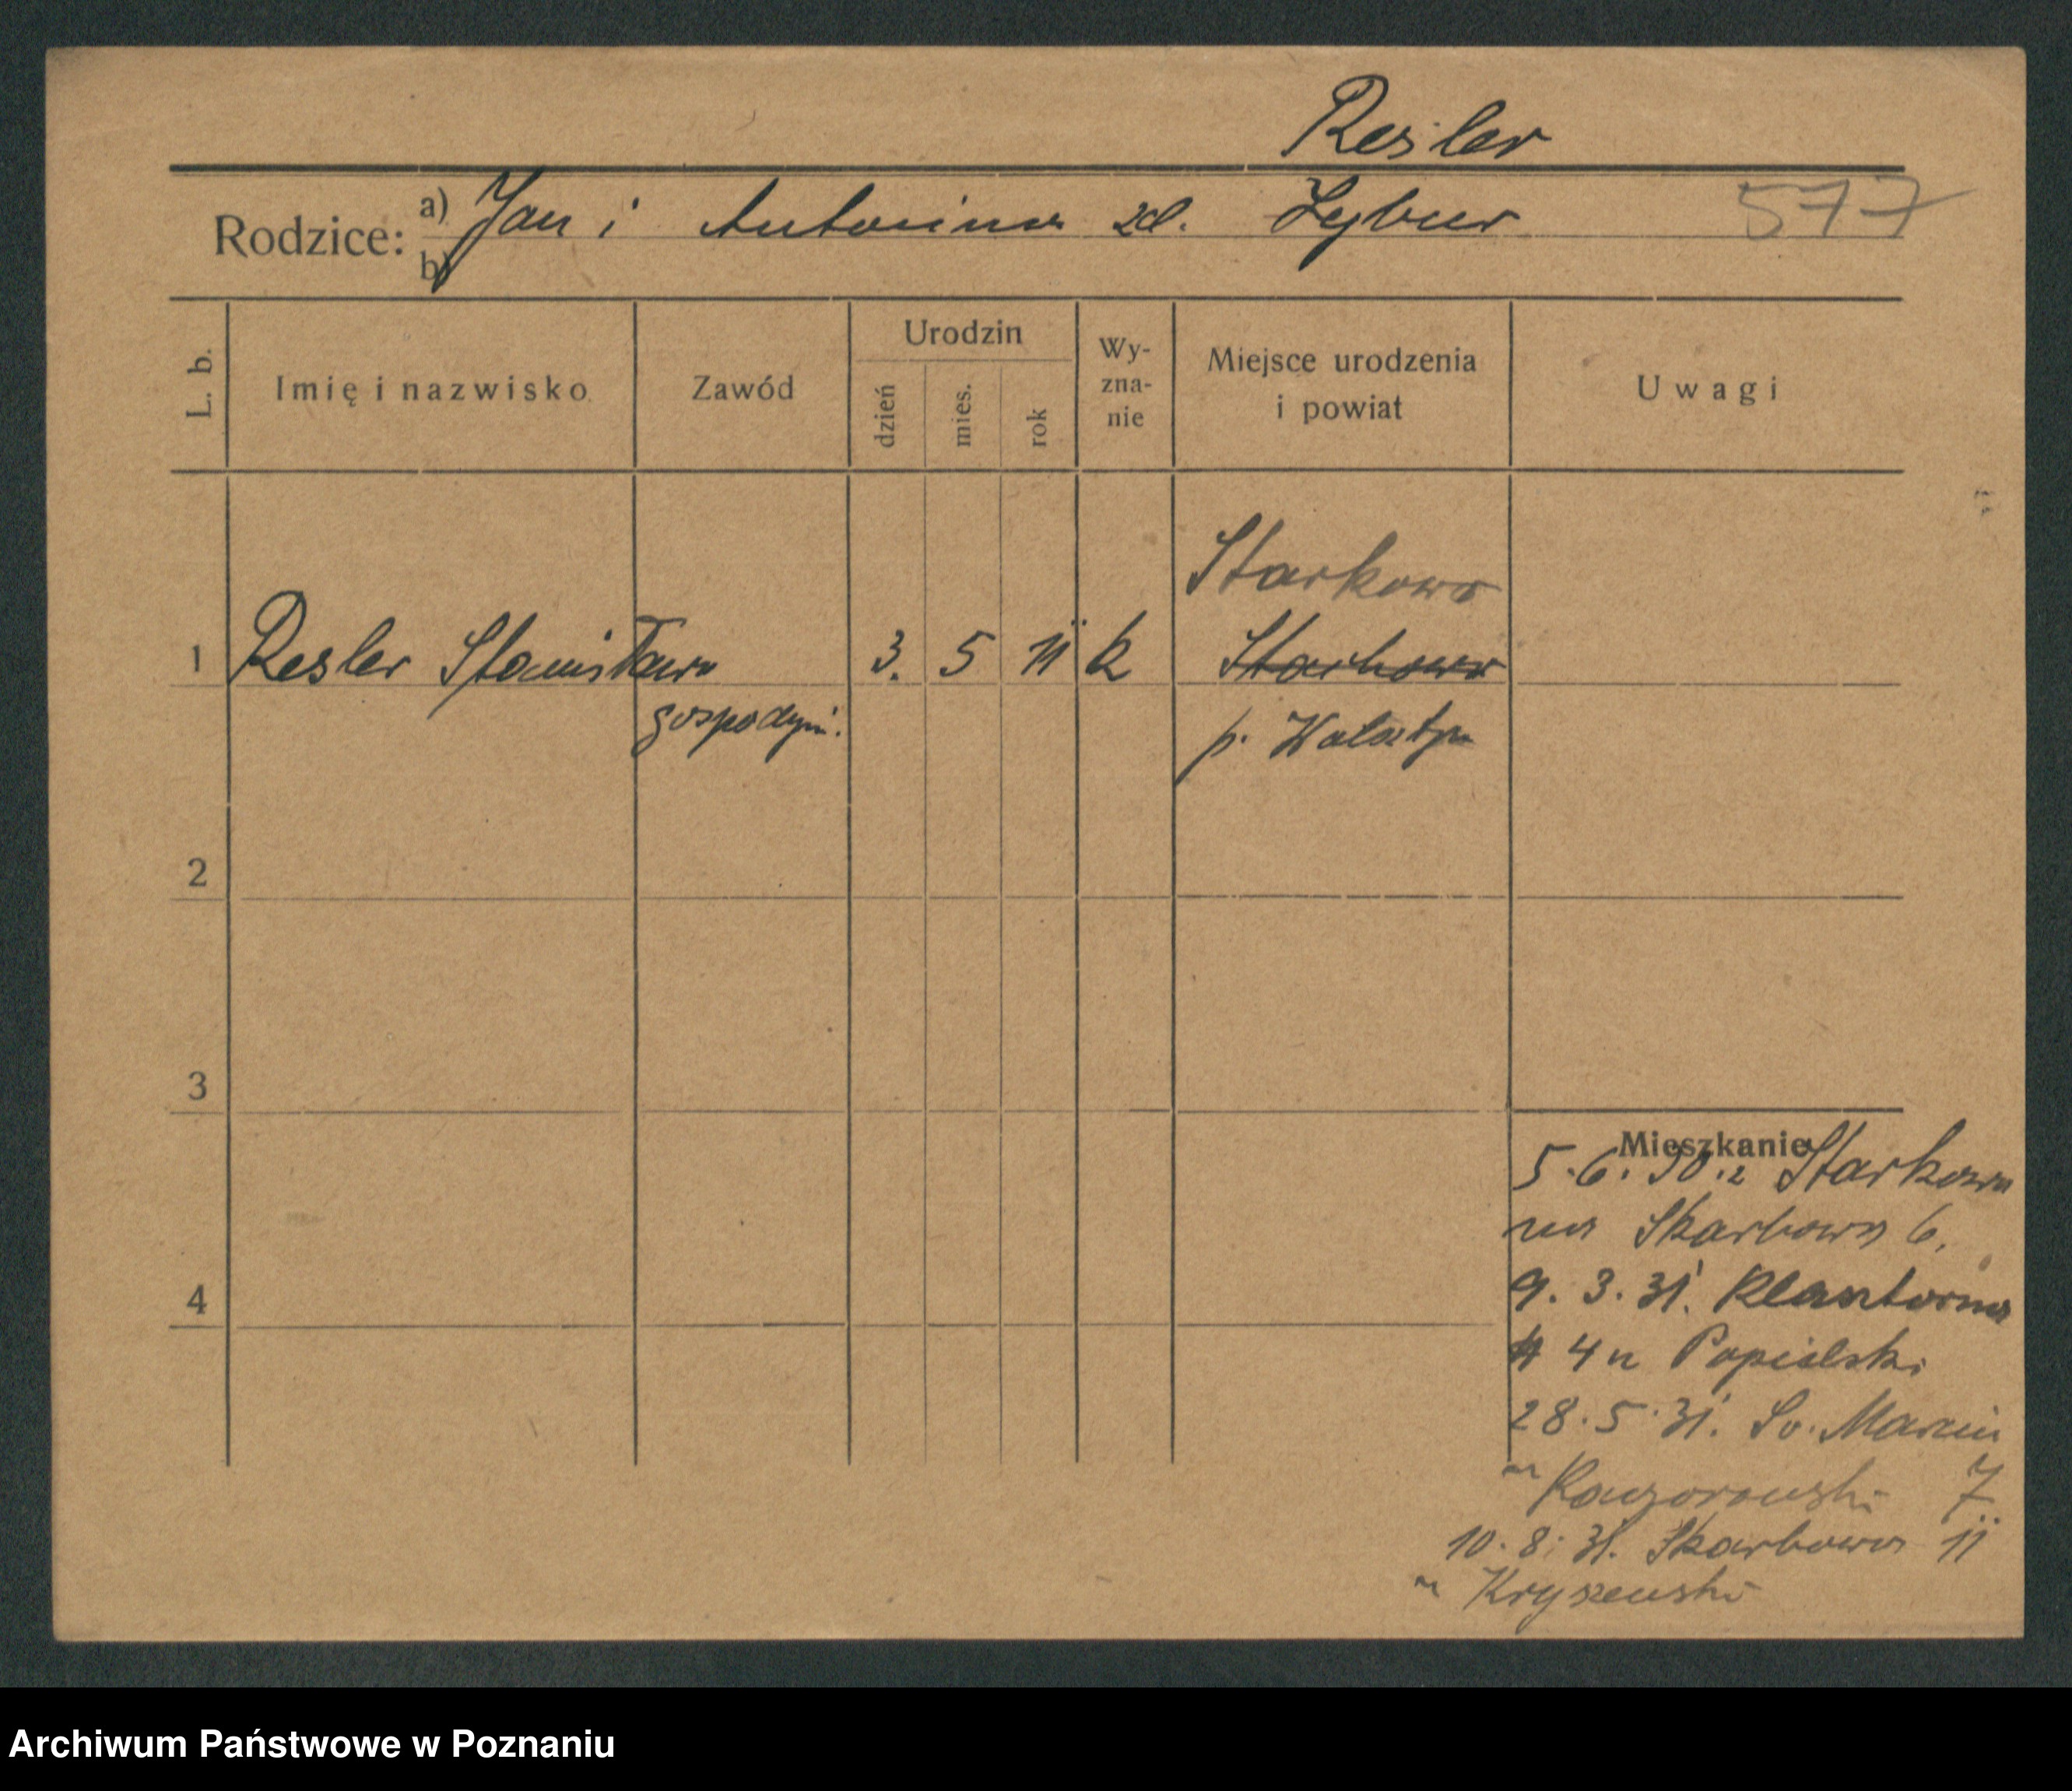 Resler
Rodzice: a) Jan i Antonina zd. Zybur 577
b)
L. b. Imię i nazwisko Zawód Urodzin dzień mies. rok Wy-zna-nie Miejsce urodzenia i powiat Uwagi
Starkowo
1 Resler Stanisława 3. 5 11 k Starkowo
gospodyni. p. Wolsztyn
2
3
Mieszkanie
5.6.30. z Starkowa
na Skarbowa 6.
9. 3. 31. Klasztorna
4
4 u Popielski
28.5.31. Św. Marcin
u Kaczorowski 7
10.8.31. Skarbowa 11
u Kryszewski
Archiwum Państwowe w Poznaniu